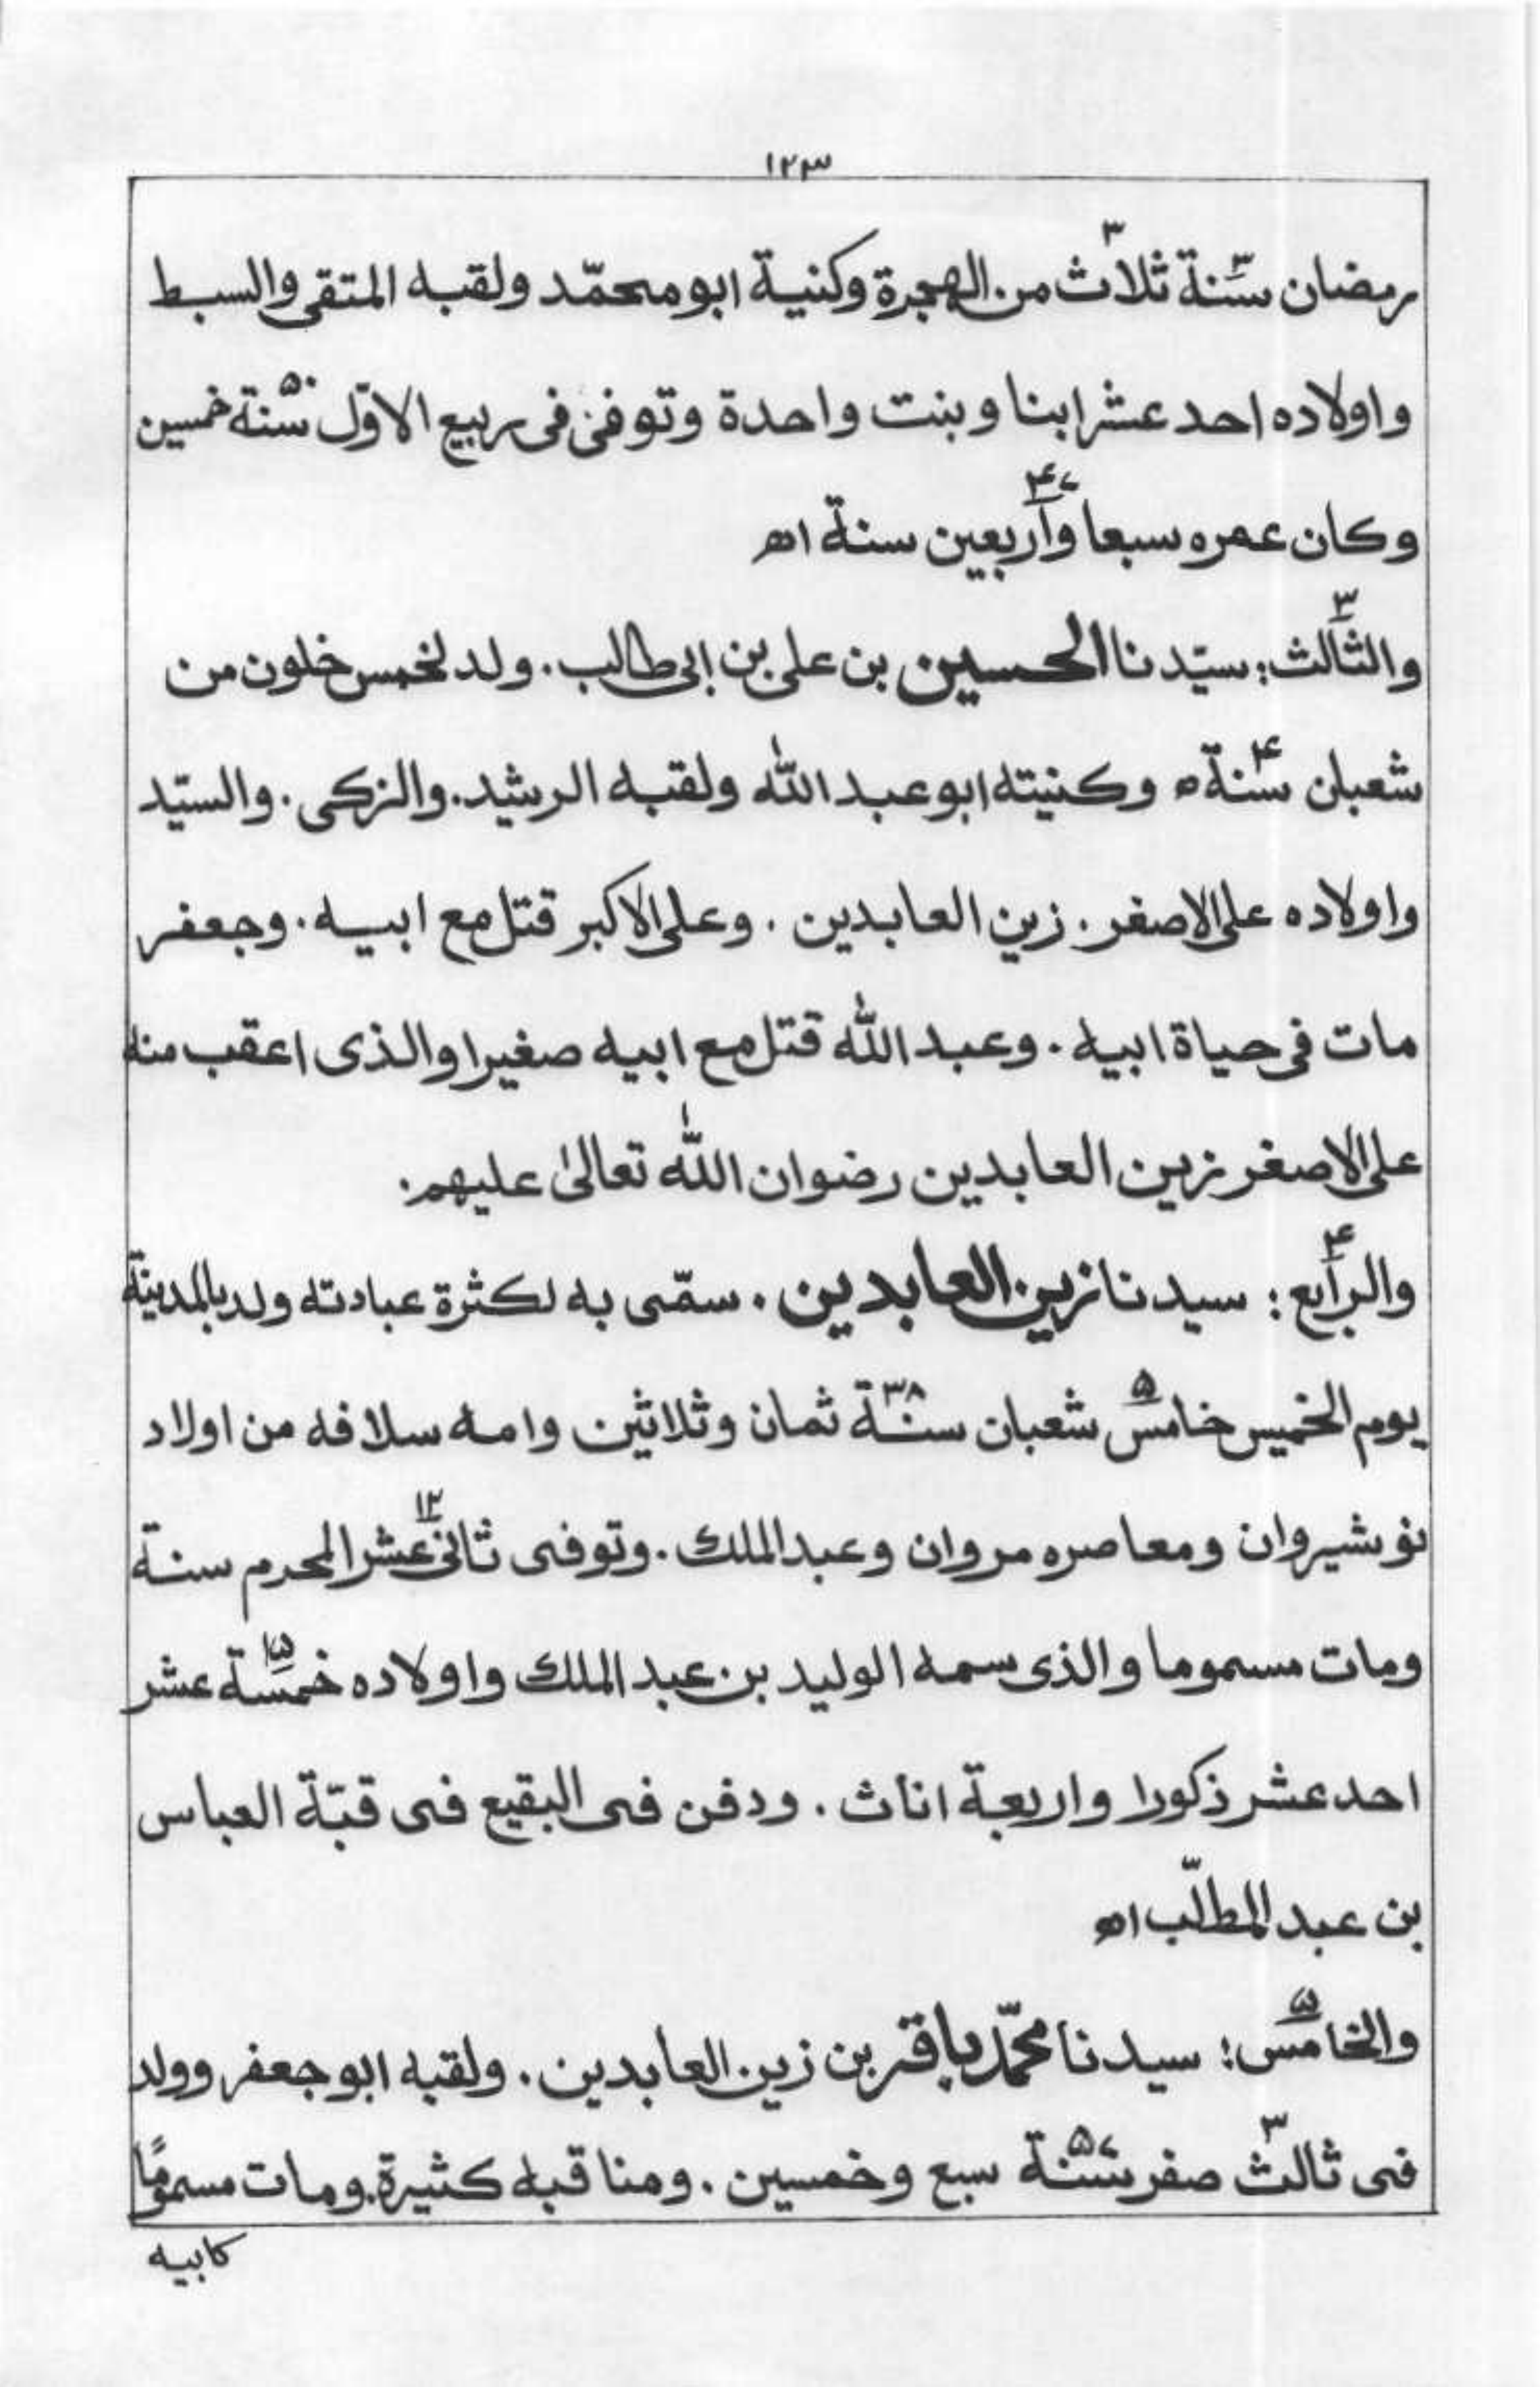 ١٢٣
رمضان سنة ٣ ثلاث من الهجرة وكنية ابو محمّد ولقبه المتقى والسبط
واولاده احد عشر ابنا وبنت واحدة وتوفى فى ربيع الاوّل سنة ٥٠ خمسين
وكان عمره سبعا واربعين ٤٧ سنة اه
والثالث ٣: سيّدنا الحسين بن على بن ابى طالب. ولد لخمس خلون من
شعبان سنة ٤ ه وكنيته ابو عبد الله ولقبه الرشيد. والزكى. والسيّد
واولاده على الاصغر. زين العابدين. وعلى الاكبر قتل مع ابيه. وجعفر
مات فى حياة ابيه. وعبد الله قتل مع ابيه صغيرا والذى اعقب منه
على الاصغر زين العابدين رضوان الله تعالىٰ عليهم.
والرابع ٤: سيدنا زين العابدين. سمّى به لكثرة عبادته ولد بالمدينة
يوم الخميس خامس ٥ شعبان سنة ٣٨ ثمان وثلاثين وامه سلافه من اولاد
نوشيروان ومعاصره مروان وعبد الملك. وتوفى ثانى عشر ١٢ المحرم سنة
ومات مسموما والذى سمه الوليد بن عبد الملك واولاده خمسة ١٥ عشر
احد عشر ذكورا واربعة اناث. ودفن فى البقيع فى قبّة العباس
بن عبد المطلّب اه
والخامس ٥: سيدنا محمّد باقر بن زين العابدين. ولقبه ابو جعفر وولد
فى ثالث ٣ صفر سنة ٥٧ سبع وخمسين. ومناقبه كثيرة. ومات مسمومًا
كابيه